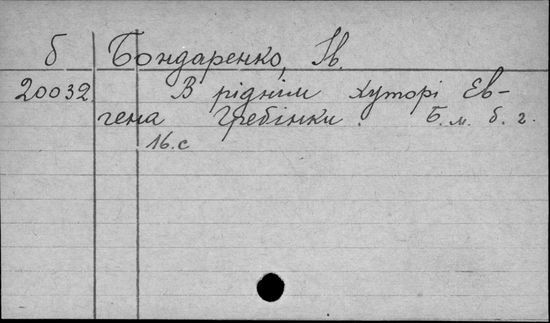 б Бондаренко, Ів.
20032 В рідним хуторі Єв-
гена Гребінки. Б. м. б. г.
16. с